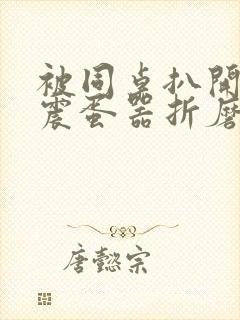 被同桌扒開
震蛋器折磨
唐懿宗